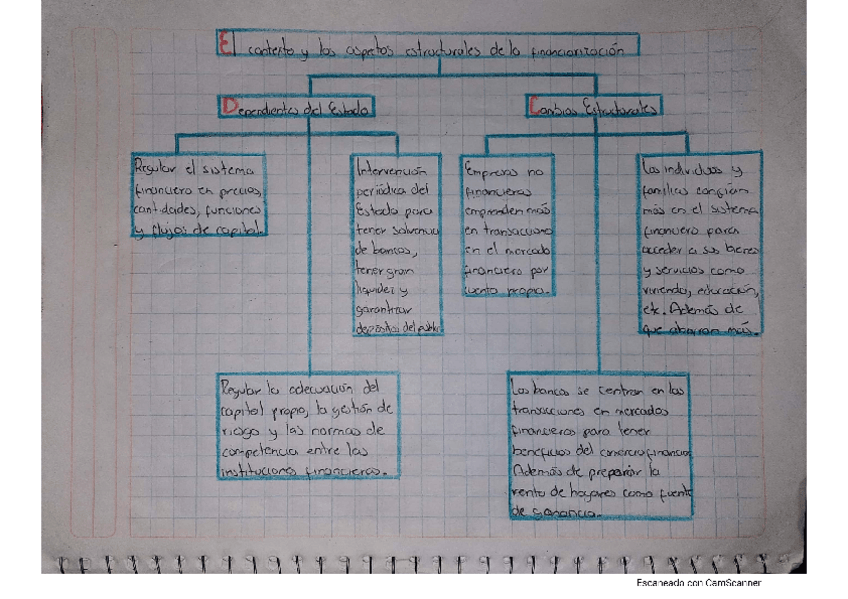 El contexto y los aspetos estructurales de la financiarización
Dependientes del Estado
Cambios Estructurales
Regular el sistema
financiero en precios,
cantidades, funciones
y flujos de capital.
Intervención
periódica del
Estado para
tener solvencia
de bancos,
tener gran
liquidez y
garantizar
depósitos del public
Empresas no
financieras
emprenden más
en transacciones
en el mercado
financiero por
cuenta propia.
Los individuos y
familias confían
más en el sistema
financiero para
acceder a sus bienes
y servicios como
vivienda, educación,
etc. Además de
que ahorran más.
Regular la adecuación del
capital propio, la gestión de
riesgo y las normas de
competencia entre las
instituciones financieras.
Los bancos se centran en las
transacciones en mercados
financieros para tener
beneficios del comercio financio
Además de preparar la
renta de hogares como fuente
de ganancia.
Escaneado con CamScanner